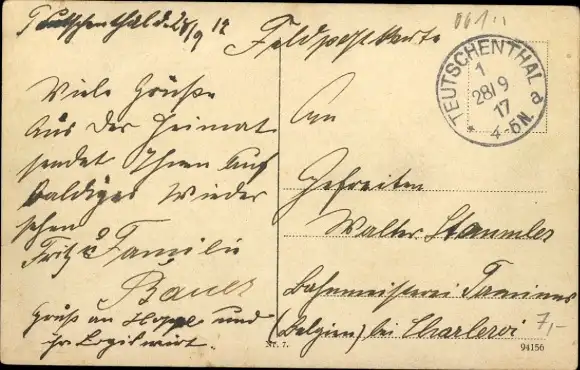 Teutschenthal d. 28/9 17
Feldpostkarte
Viele Grüße
Aus der Heimat
sendet Ihnen Auf
baldiges Wieder
sehen
Fritz & Familie
Bauer
Gruß an Hoppe und
ihr Logiswirt.
An
Gefreiten
Walter Stammler
Bahnmeisterei Tamines
(Belgien) bei Charleroi
7,-
TEUTSCHENTHAL
1
28/9
17
* 4-5N.
Nr. 7.
94156